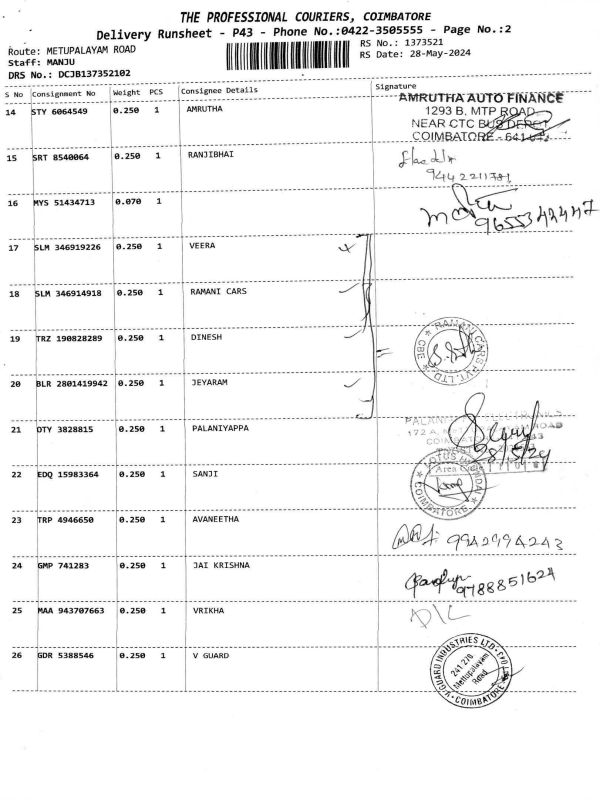 THE PROFESSIONAL COURIERS, COIMBATORE
Delivery Runsheet - P43 - Phone No.:0422-3505555 - Page No.:2
Route: METUPALAYAM ROAD
RS No.: 1373521
Staff: MANJU
RS Date: 28-May-2024
DRS No.: DCJB137352102
S No Consignment No Weight PCS Consignee Details Signature
14 STY 6064549 0.250 1 AMRUTHA
AMRUTHA AUTO FINANCE
1293 B, MTP ROAD
NEAR CTC BUS DEPOT
COIMBATORE - 641 043
15 SRT 8540064 0.250 1 RANJIBHAI
16 MYS 51434713 0.070 1
9655342447
17 SLM 346919226 0.250 1 VEERA
18 SLM 346914918 0.250 1 RAMANI CARS
19 TRZ 190828289 0.250 1 DINESH
RAMANI CARS PVT. LTD. CBE
20 BLR 2801419942 0.250 1 JEYARAM
21 OTY 3828815 0.250 1 PALANIYAPPA
28/5/24
22 EDQ 15983364 0.250 1 SANJI
COIMBATORE
23 TRP 4946650 0.250 1 AVANEETHA
9942994243
24 GMP 741283 0.250 1 JAI KRISHNA
9788851624
25 MAA 943707663 0.250 1 VRIKHA
D/L
26 GDR 5388546 0.250 1 V GUARD
V-GUARD INDUSTRIES LTD
Mettupalayam
Road
COIMBATORE